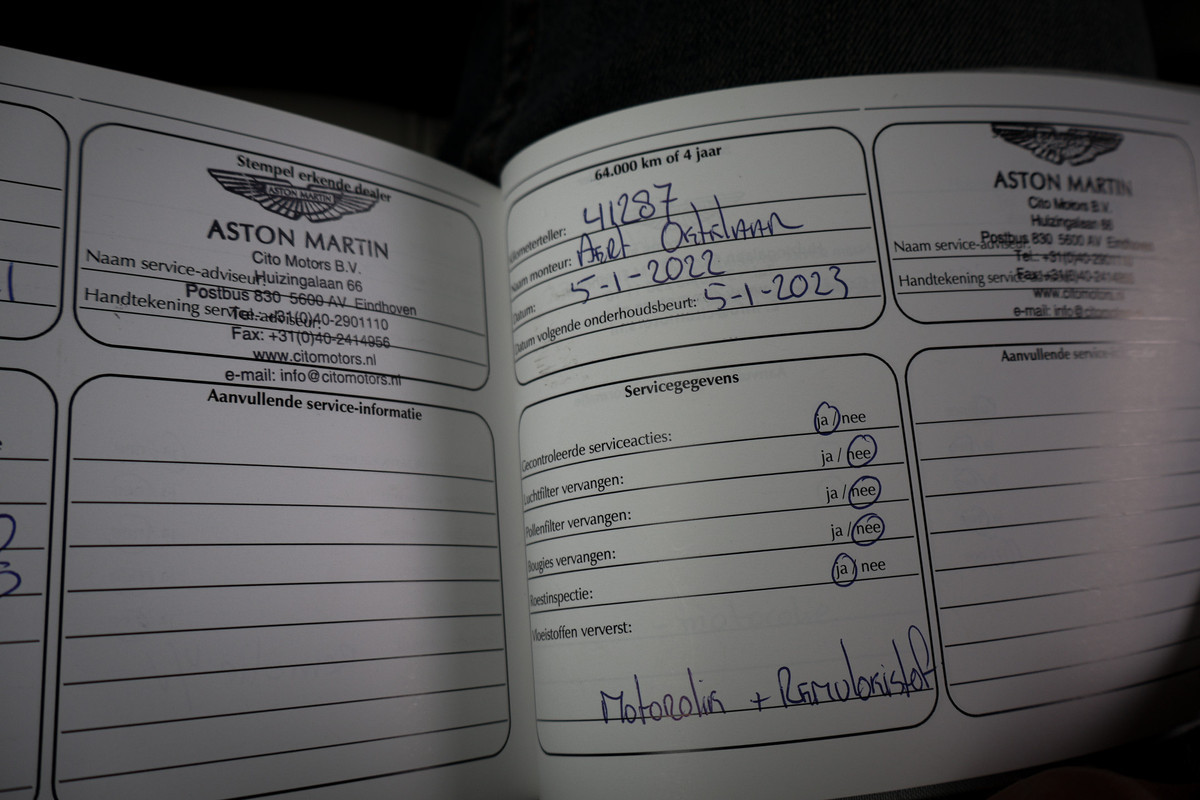 Stempel erkende dealer
ASTON MARTIN
ASTON MARTIN
Cito Motors B.V.
Naam service-adviseur:
Huizingalaan 66
Postbus 830 5600 AV Eindhoven
Handtekening service-adviseur:
Tel.: +31(0)40-2901110
Fax: +31(0)40-2414956
www.citomotors.nl
e-mail: info@citomotors.nl
Aanvullende service-informatie
64.000 km of 4 jaar
Kilometerteller: 41287
Naam monteur: Aart
Datum: 5-1-2022
Datum volgende onderhoudsbeurt: 5-1-2023
Servicegegevens
Gecontroleerde serviceacties: ja / nee
Luchtfilter vervangen: ja / nee
Pollenfilter vervangen: ja / nee
Bougies vervangen: ja / nee
Roestinspectie: ja / nee
Vloeistoffen ververst:
Motorolie + Remvloeistof
ASTON MARTIN
Cito Motors B.V.
Huizingalaan 66
Postbus 830 5600 AV Eindhoven
Naam service-
Tel.: +31(0)40-2901110
Handtekening service-
Fax: +31(0)40-2414956
www.citomotors
e-mail: info@citomotors
Aanvullende service-